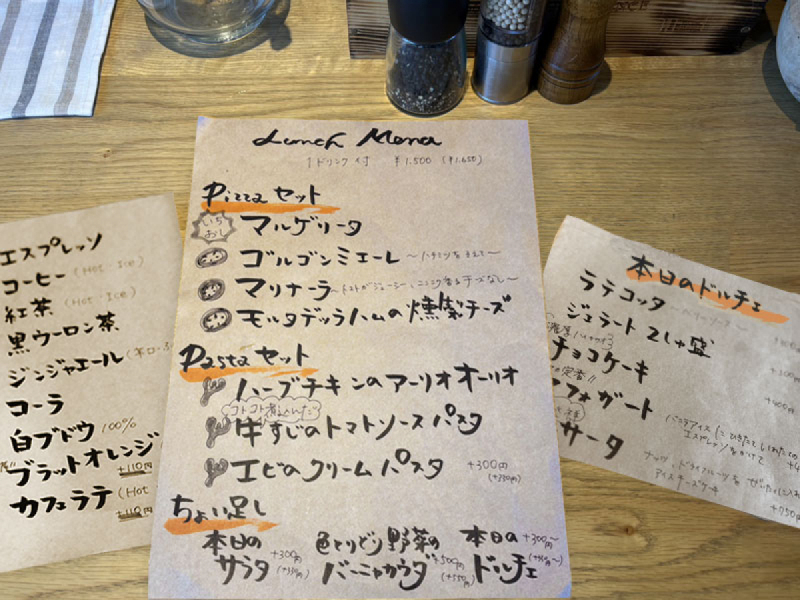 エスプレッソ
コーヒー (Hot・Ice)
紅茶 (Hot・Ice)
黒ウーロン茶
ジンジャエール
コーラ
白ブドウ 100%
ブラットオレンジ
+110円
カフェラテ (Hot
+110円
Lunch Menu
1ドリンク付 ¥1.500 (¥1.650)
Pizzaセット
いちおし
マルゲリータ
ゴルゴンミエーレ
マリナーラ
モルタデッラハムの燻製チーズ
Pastaセット
ハーブチキンのアーリオオーリオ
コトコト煮込んだ
牛すじのトマトソースパスタ
エビのクリームパスタ +300円
(+330円)
ちょい足し
本日のサラダ +300円 (+330円)
色とりどり野菜のバーニャカウダ +500円 (+550円)
本日のドルチェ +300円〜
本日のドルチェ
ジェラート2しゅ盛
チョコケーキ
フォガート
バニラアイスに
エスプレッソをかけて
ナッツ、ドライフルーツを
アイスチーズケーキ